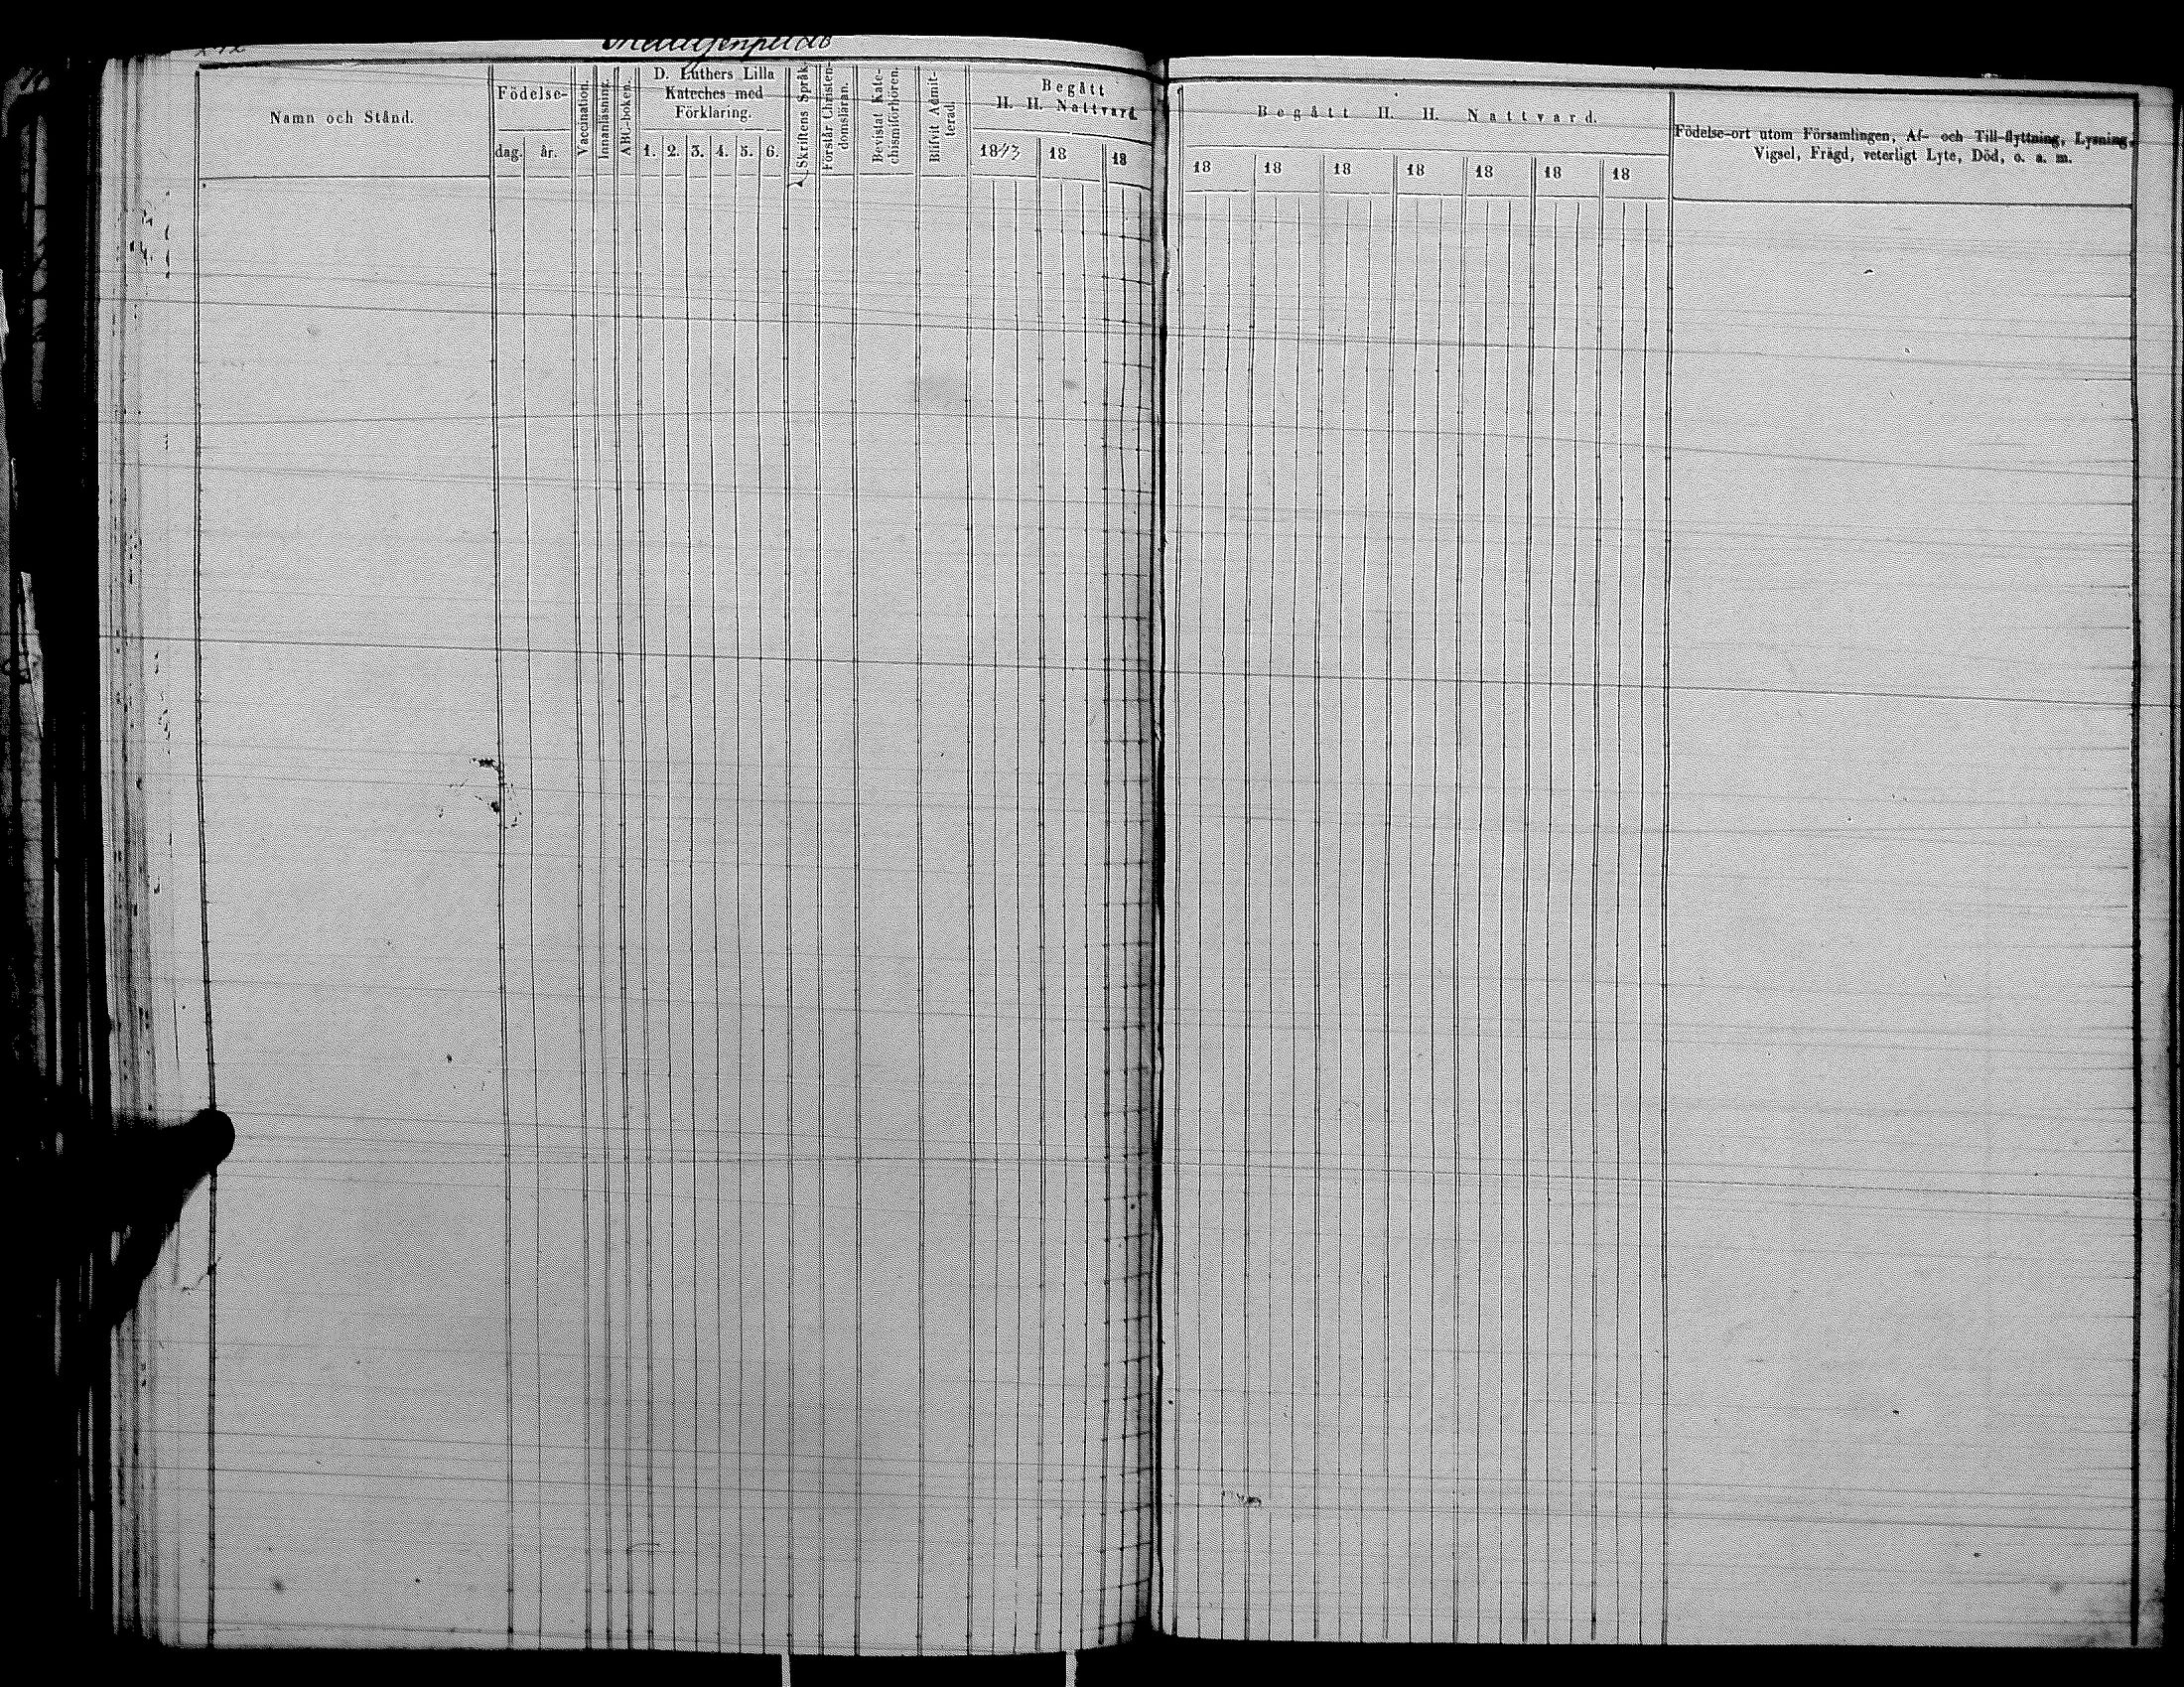 Namn och Stånd.
Födelse-
dag. år.
Vaccination.
Innanläsning.
ABC-boken.
D. Luthers Lilla
Kateches med
Förklaring.
1. 2. 3. 4. 5. 6.
Skriftens Språk.
Förstår Christen-
domsläran.
Bevistat Kate-
chismiförhören.
Blifvit Admit-
terad.
Begått
H. H. Nattvard
1843 18 18
Begått H. H. Nattvard.
18 18 18 18 18 18 18
Födelse-ort utom Församlingen, Af- och Till-flyttning, Lysning,
Vigsel, Frägd, veterligt Lyte, Död, o. a. m.